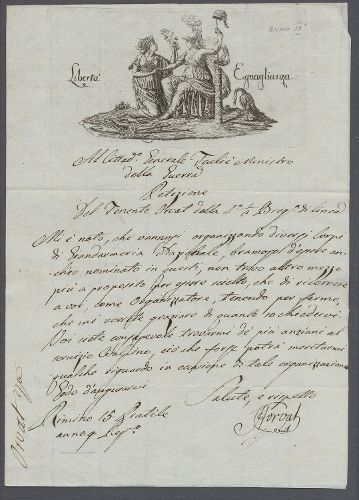 ANNO IX
Libertà Eguaglianza
Al Cittad.° Generale Teulié Ministro
della Guerra
Petizione
Del Tenente Orvat della 2.a ½ Brig.a di Linea
Mi è noto, che vannosi organizzando diversi Corpi
di Gendarmeria Nazionale, bramoso d'esser
anch'io nominato in questi, non trovo altro mezzo
più a proposito per esser scelto, che di ricorrere
a voi, come Organizzatore, tenendo per fermo,
che mi verrete graziare di quanto io chiedervi.
Voi siete consapevole trovarmi de' più anziani al
servizio Cisalpino, ciò che forse potrà meritarmi
qualche riguardo in occasione di tale organizzazione
Godo d'augurarvi
Salute, e rispetto
15 Pratile
anno 9 Rep.°
Orvat